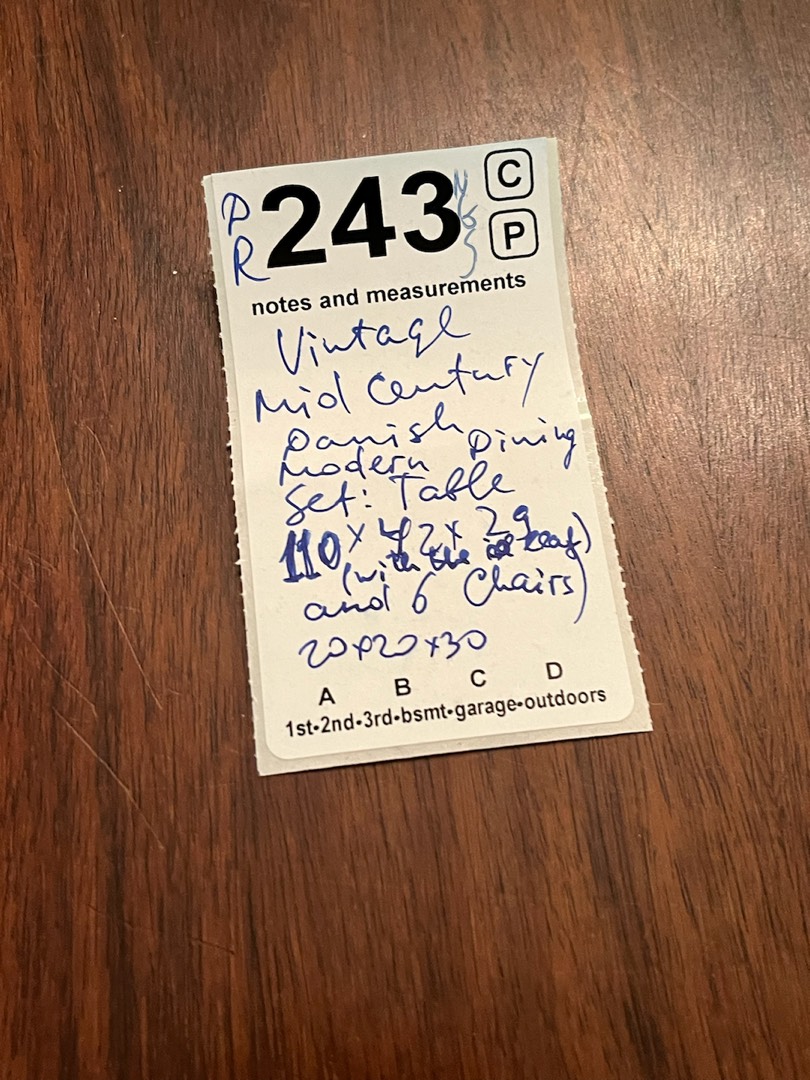 DR 243 C
P
notes and measurements
Vintage
Mid Century
Danish Dining
Modern
Set: Table
110 x 42 x 29
(with the leaf)
and 6 Chairs)
20x20x30
A B C D
1st•2nd•3rd•bsmt•garage•outdoors